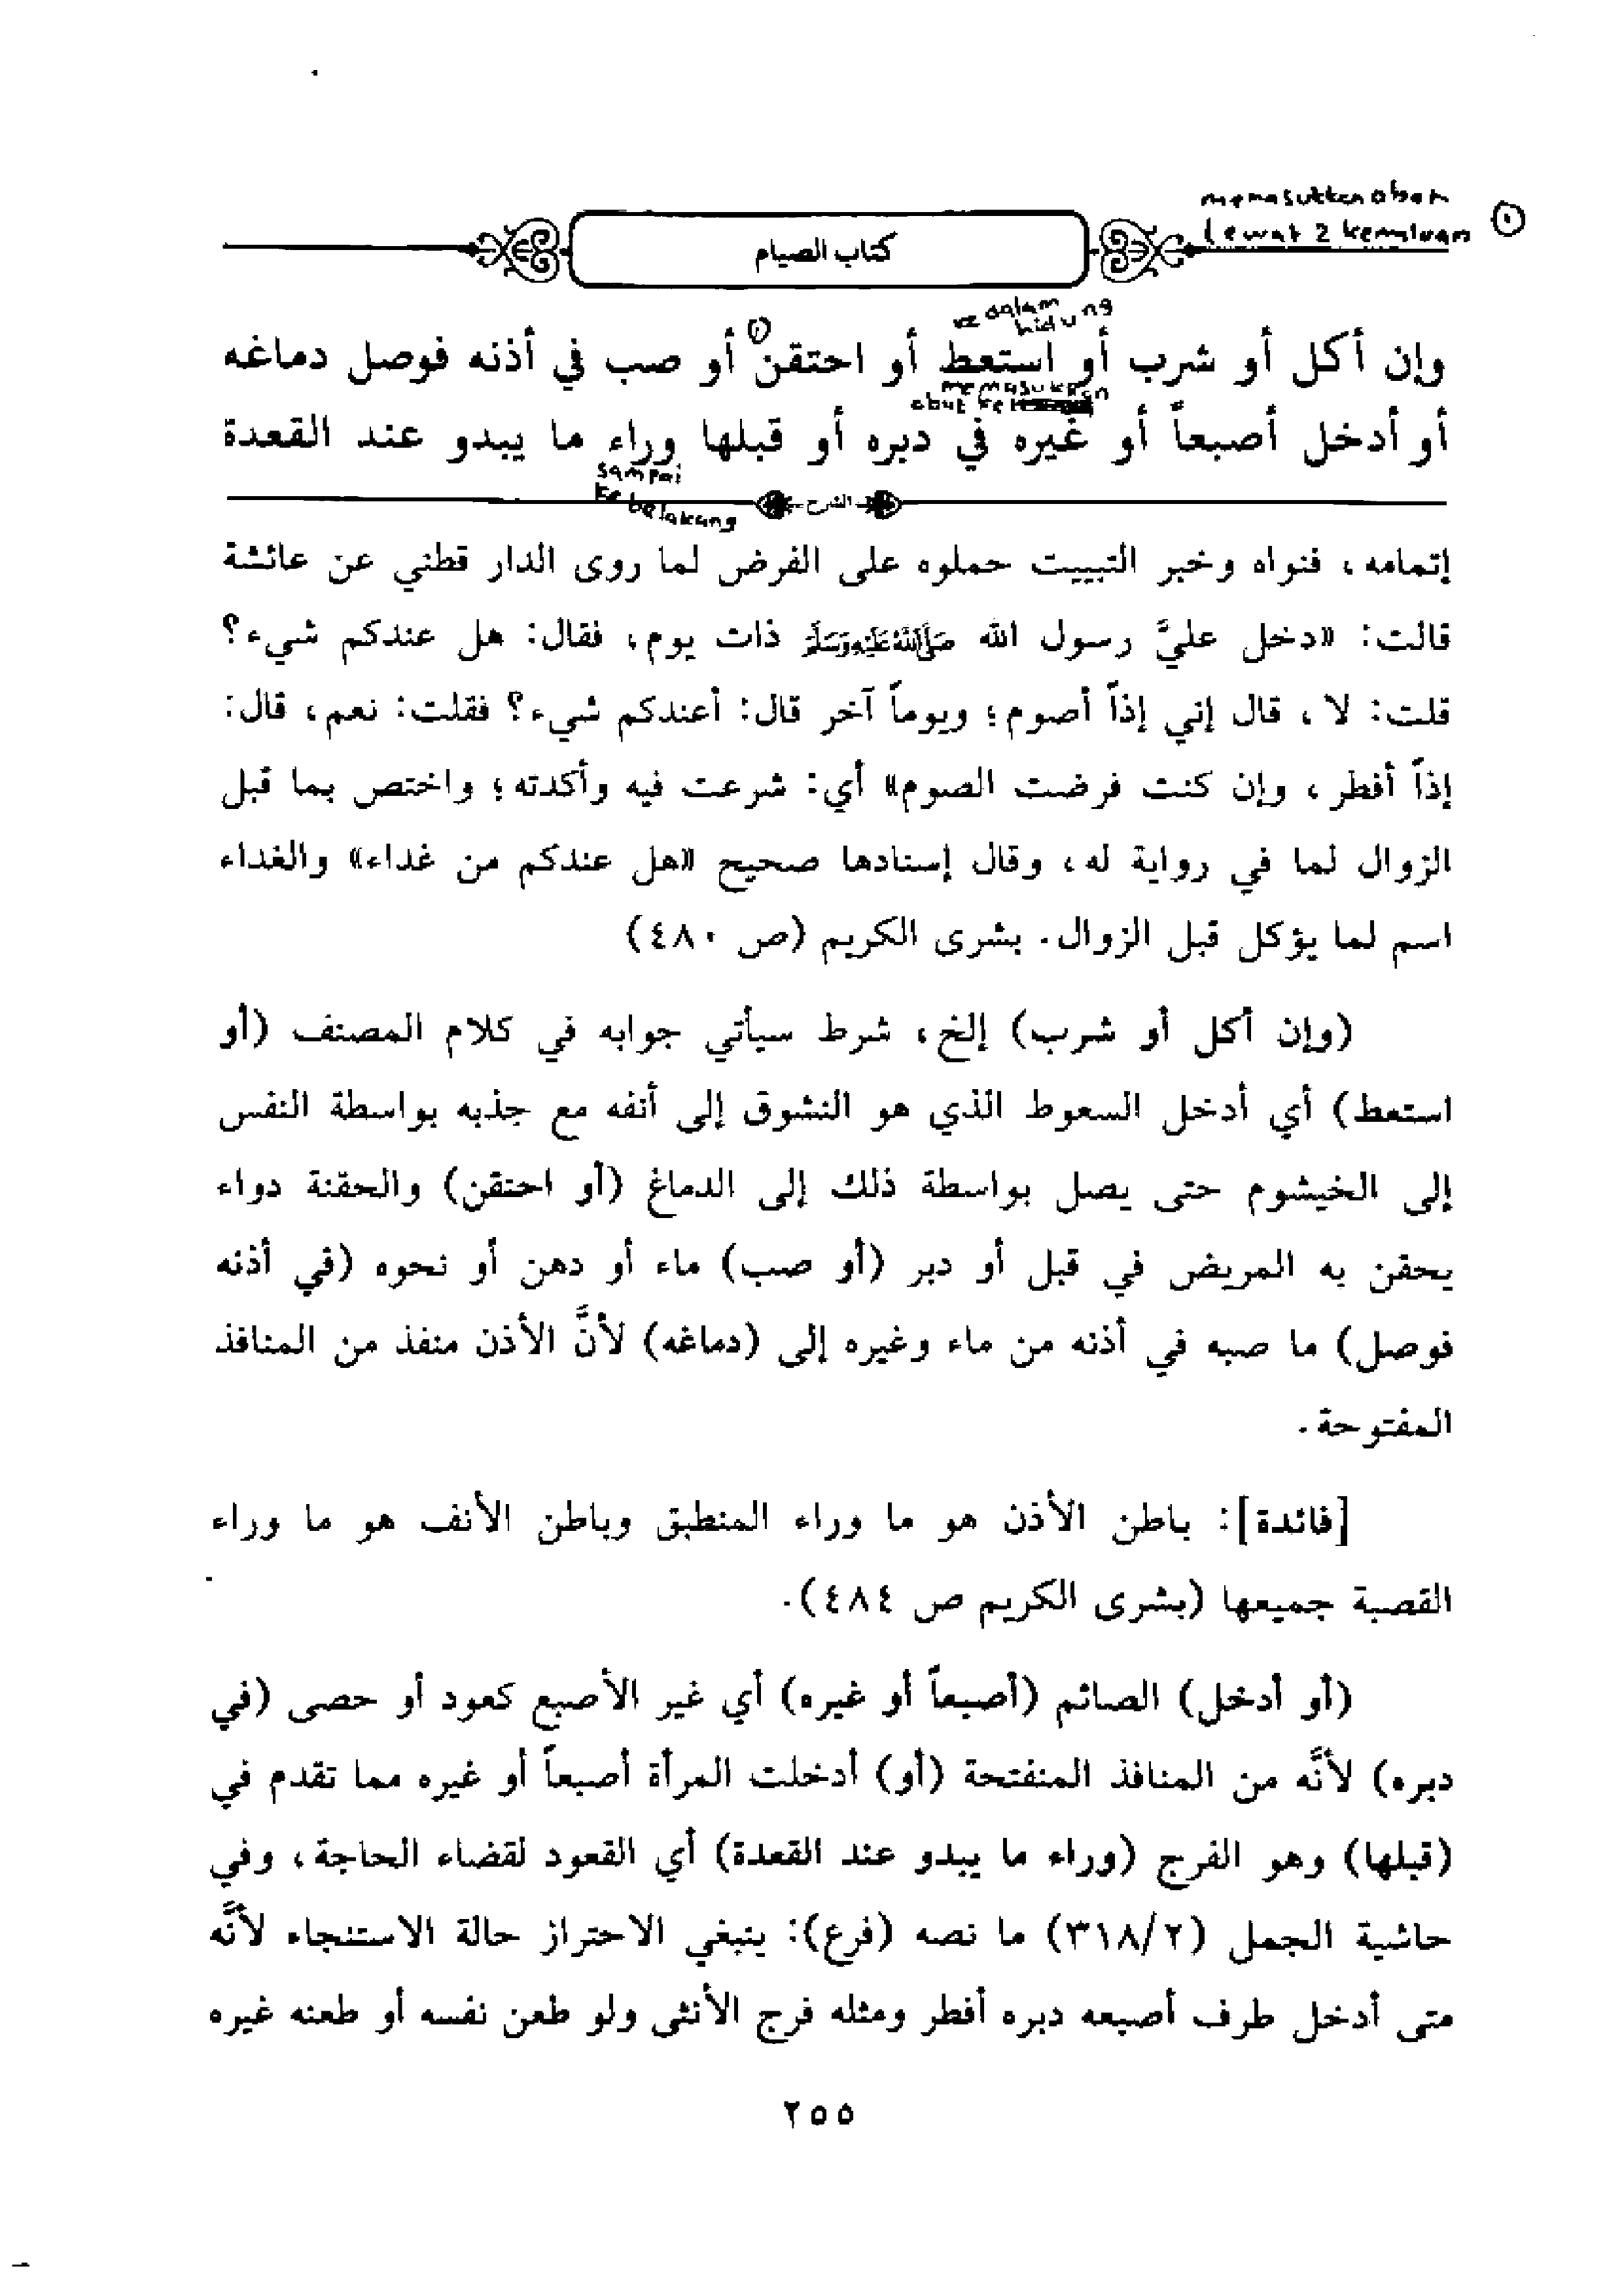 memasukkan obat
lewat 2 kemaluan ①
كتاب الصيام
ke dalam
hidung
وإن أكل أو شرب أو استعط أو احتقن أو صب في أذنه فوصل دماغه
memasukkan
obat ke
أو أدخل أصبعاً أو غيره في دبره أو قبلها وراء ما يبدو عند القعدة
sampai
ke belakang
الشرح
إتمامه، فنواه وخبر التبييت حملوه على الفرض لما روى الدار قطني عن عائشة
قالت: «دخل عليَّ رسول الله ﷺ ذات يوم، فقال: هل عندكم شيء؟
قلت: لا، قال إني إذاً أصوم؛ ويوماً آخر قال: أعندكم شيء؟ فقلت: نعم، قال:
إذاً أفطر، وإن كنت فرضت الصوم» أي: شرعت فيه وأكدته؛ واختص بما قبل
الزوال لما في رواية له، وقال إسنادها صحيح «هل عندكم من غداء» والغداء
اسم لما يؤكل قبل الزوال. بشرى الكريم (ص ٤٨٠)
(وإن أكل أو شرب) إلخ، شرط سيأتي جوابه في كلام المصنف (أو
استعط) أي أدخل السعوط الذي هو النشوق إلى أنفه مع جذبه بواسطة النفس
إلى الخيشوم حتى يصل بواسطة ذلك إلى الدماغ (أو احتقن) والحقنة دواء
يحقن به المريض في قبل أو دبر (أو صب) ماء أو دهن أو نحوه (في أذنه
فوصل) ما صبه في أذنه من ماء وغيره إلى (دماغه) لأنَّ الأذن منفذ من المنافذ
المفتوحة.
[فائدة]: باطن الأذن هو ما وراء المنطبق وباطن الأنف هو ما وراء
القصبة جميعها (بشرى الكريم ص ٤٨٤).
(أو أدخل) الصائم (أصبعاً أو غيره) أي غير الأصبع كعود أو حصى (في
دبره) لأنَّه من المنافذ المنفتحة (أو) أدخلت المرأة أصبعاً أو غيره مما تقدم في
(قبلها) وهو الفرج (وراء ما يبدو عند القعدة) أي القعود لقضاء الحاجة، وفي
حاشية الجمل (٣١٨/٢) ما نصه (فرع): ينبغي الاحتراز حالة الاستنجاء لأنَّه
متى أدخل طرف أصبعه دبره أفطر ومثله فرج الأنثى ولو طعن نفسه أو طعنه غيره
٢٥٥